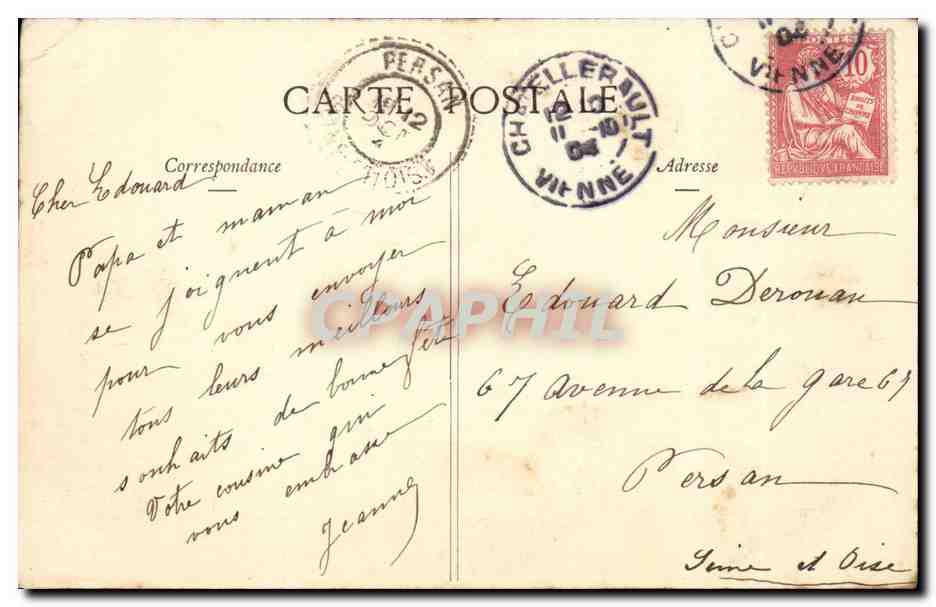 CARTE POSTALE
Correspondance
Adresse
PERSAN
12
CHATELLERAULT
12
11 -10
04
VIENNE
04
VIENNE
POSTES
10
DROITS
DE
L'HOMME
REPUBLIQUE FRANÇAISE
Cher Edouard
Papa et maman
se joignent à moi
pour vous envoyer
tous leurs meilleurs
souhaits de bonne fête
Votre cousine qui
vous embrasse
Jeanne
Monsieur
Edouard Derouan
67 avenue de la gare 67
Persan
Seine et Oise
CPAPHIL